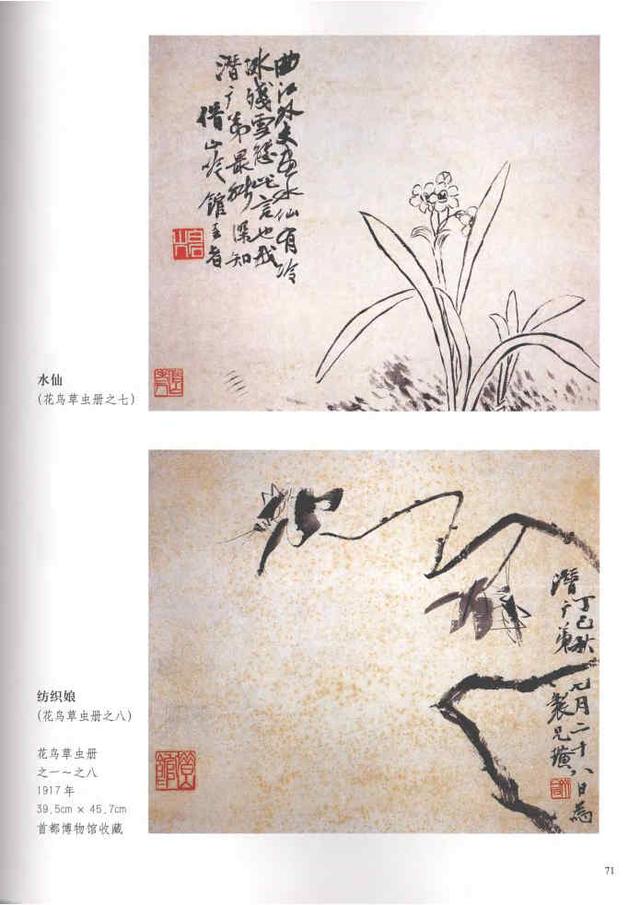 曲江外史画水仙有冷
冰殘雪態此言也我
潛广弟最能深知
借山吟館主者
水仙
(花鸟草虫册之七)
丁巳秋七月二十八日為
潛广弟製兄璜
纺织娘
(花鸟草虫册之八)
花鸟草虫册
之一～之八
1917年
39.5cm × 45.7cm
首都博物馆收藏
71